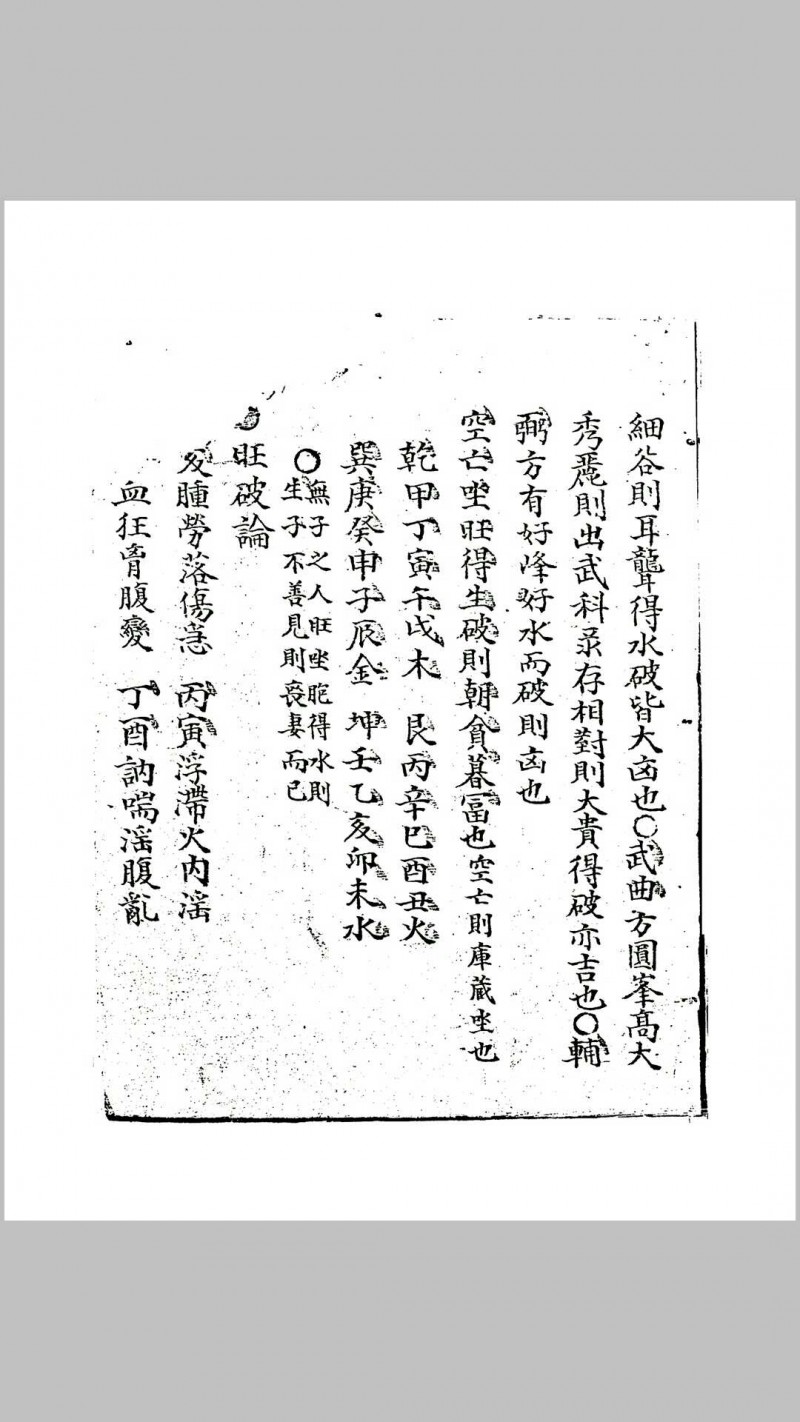 細谷則耳聾得水破皆大凶也〇武曲方圓峯高大
秀麗則出武科录存相對則大貴得破亦吉也〇輔
弼方有好峰好水而破則凶也
空亡坐旺得生破則朝貧暮冨也空亡則庫藏坐也
乾甲丁寅午戌木 艮丙辛巳酉丑火
巽庚癸申子辰金 坤壬乙亥卯未水
〇無子之人旺坐胞得水則
生子不善見則喪妻而已
旺破論
腫勞落傷急 丙寅浮滯火內滛
血狂胷腹變 丁酉訥喘滛腹亂